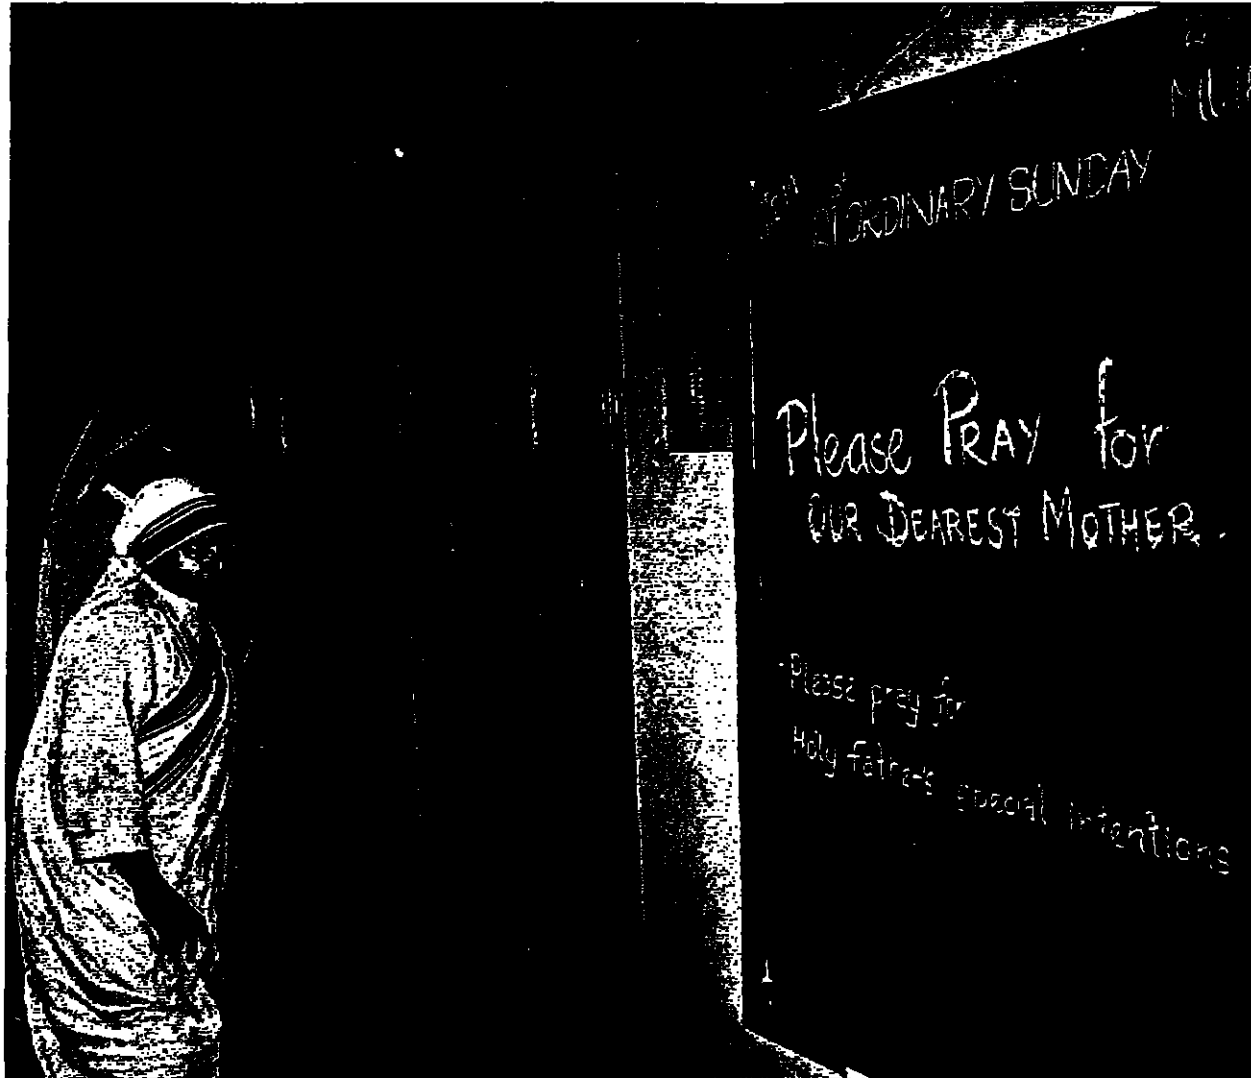 ORDINARY SUNDAY
Please PRAY for
OUR DEAREST MOTHER.
Please pray for
Holy Father's special intentions